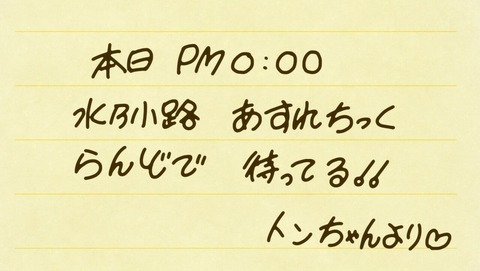 本日 PM0:00
水乃小路 あすれちっく
らんどで 待ってる!!
トンちゃんより♡